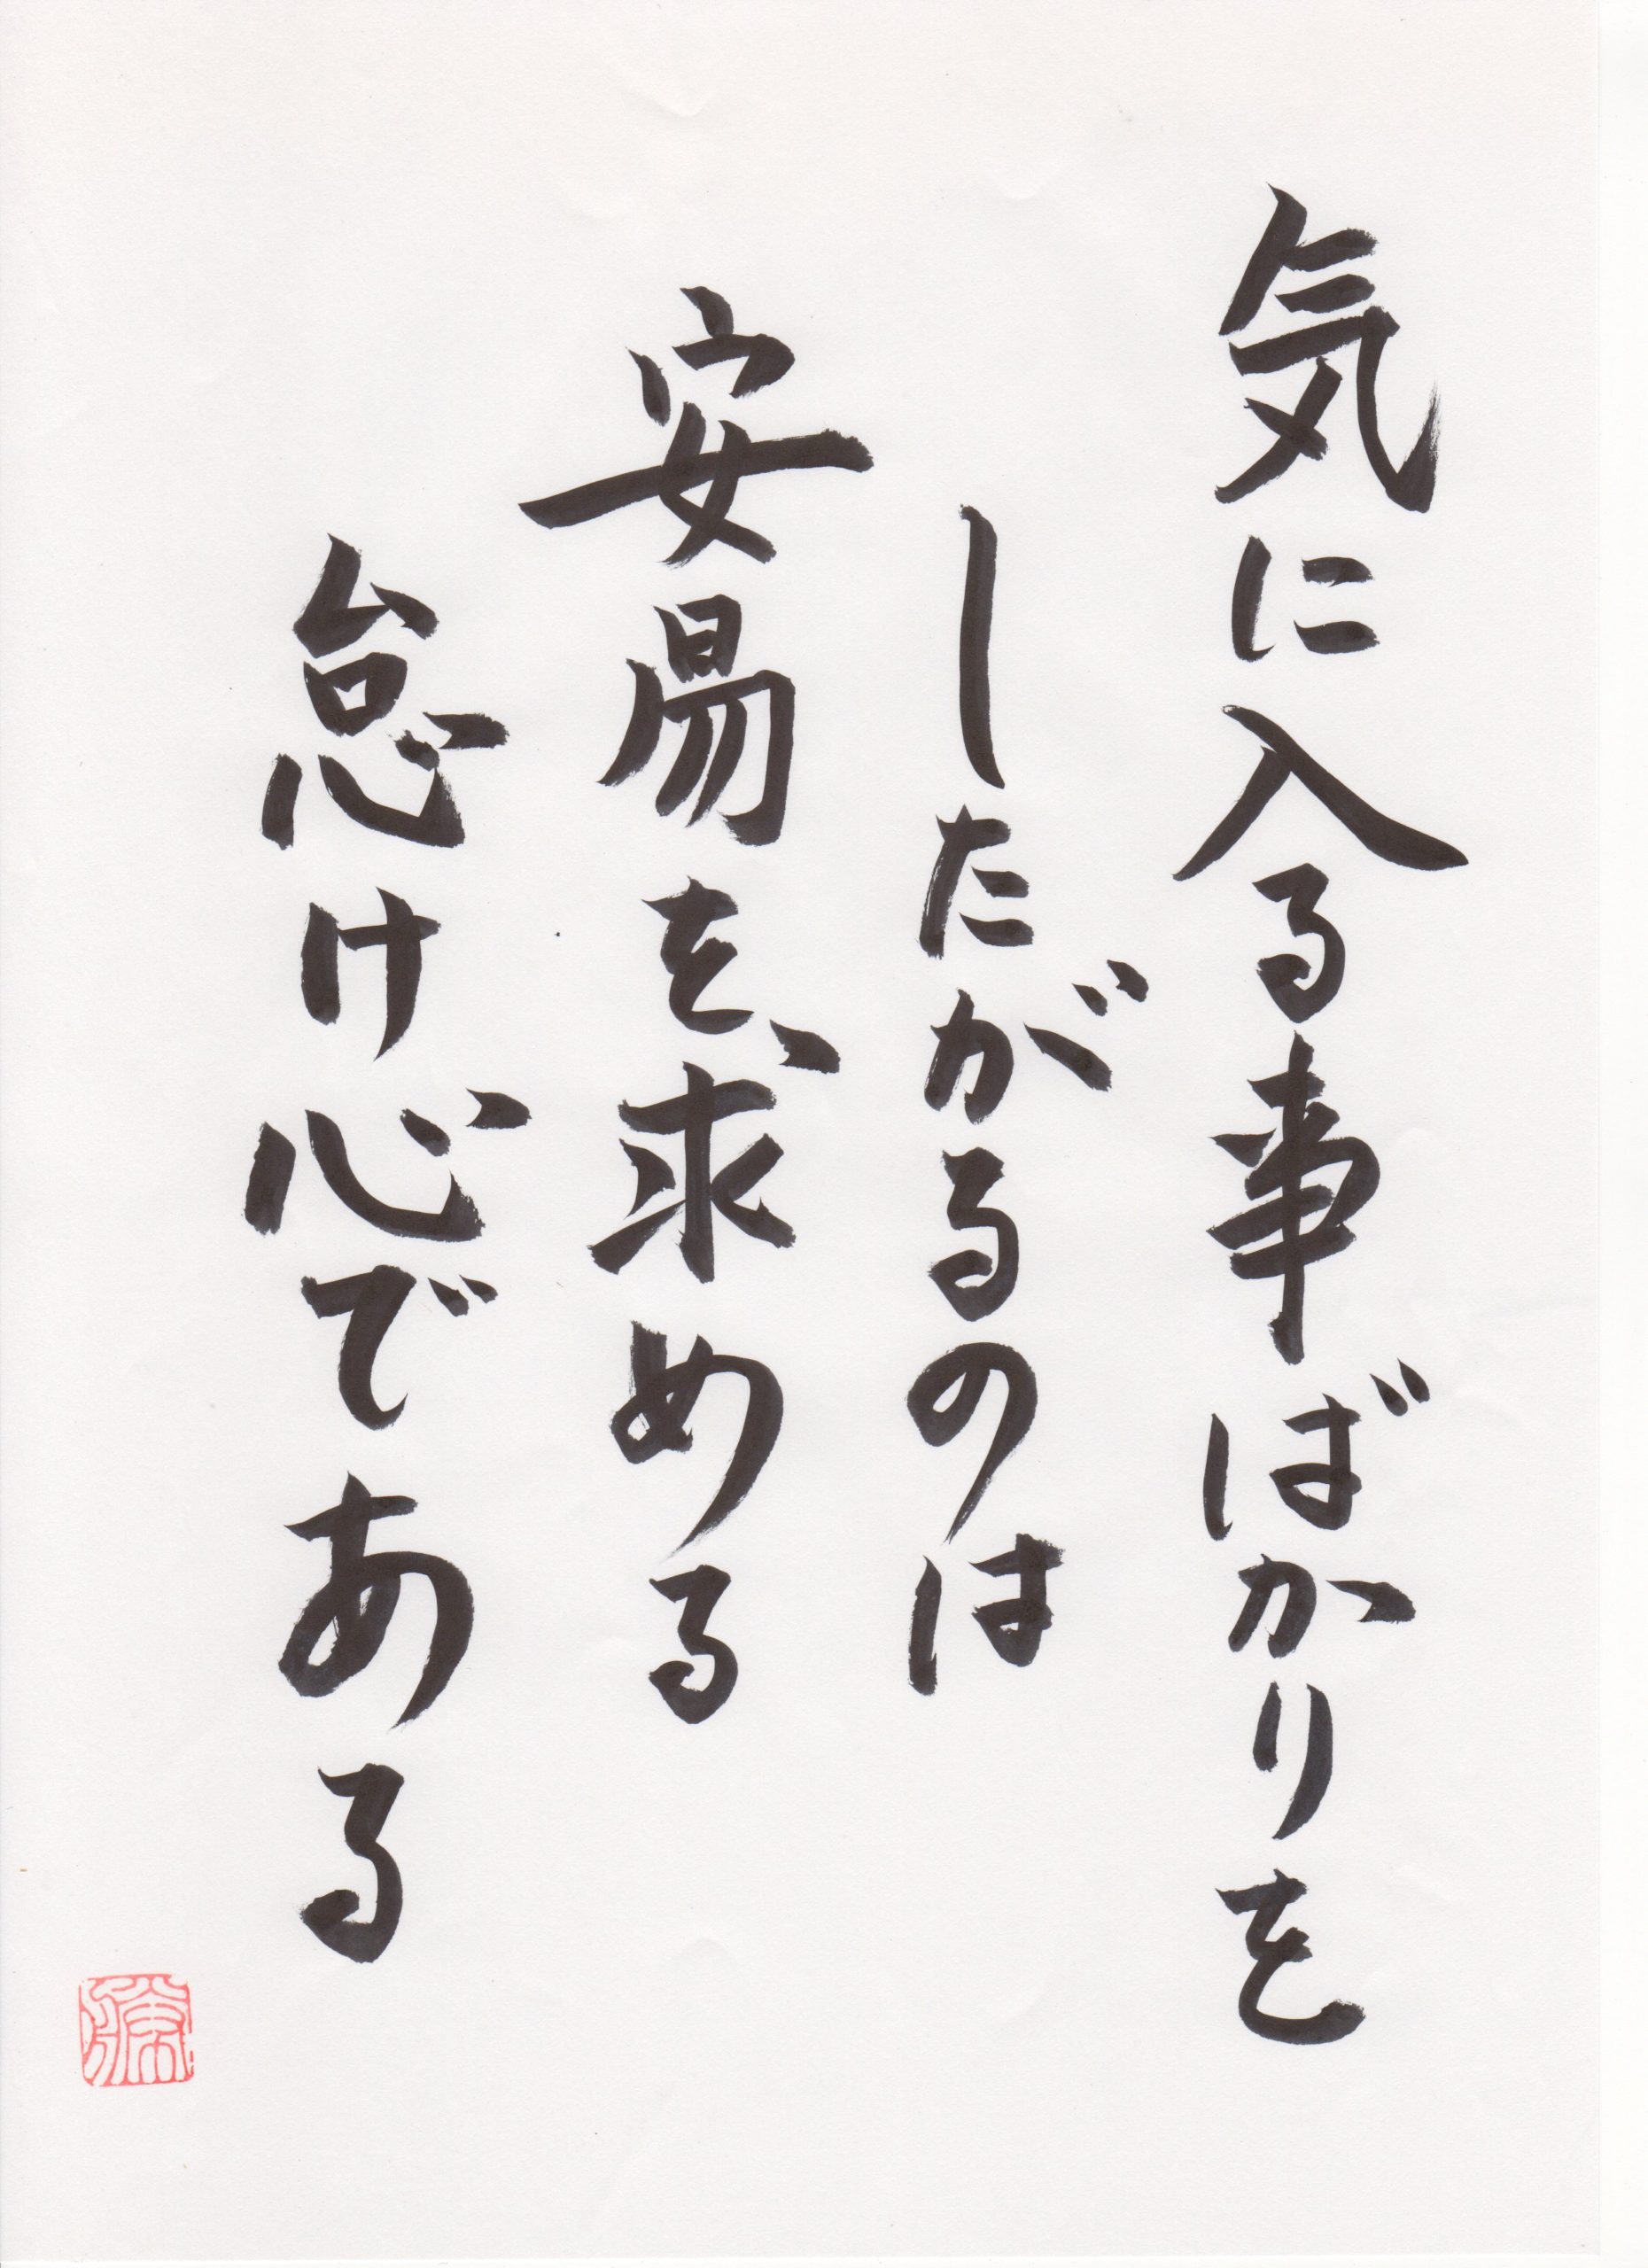 気に入る事ばかりを
したがるのは
安易を求める
怠け心である